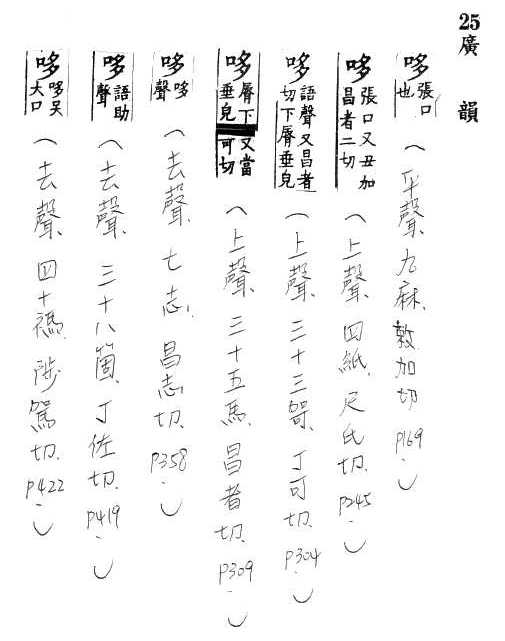 25廣韻
哆張口也(平聲、九麻、敕加切 P169.)
哆張口又丑加昌者二切(上聲、四紙、尺氏切、P245.)
哆語聲又昌者切下脣垂皃(上聲、三十三哿、丁可切、P304.)
哆脣下垂皃又當可切(上聲、三十五馬、昌者切、P309.)
哆哆聲(去聲、七志、昌志切、P358.)
哆語助聲(去聲、三十八箇、丁佐切、P419.)
哆哆吴大口(去聲、四十禡、陟駕切、P422.)